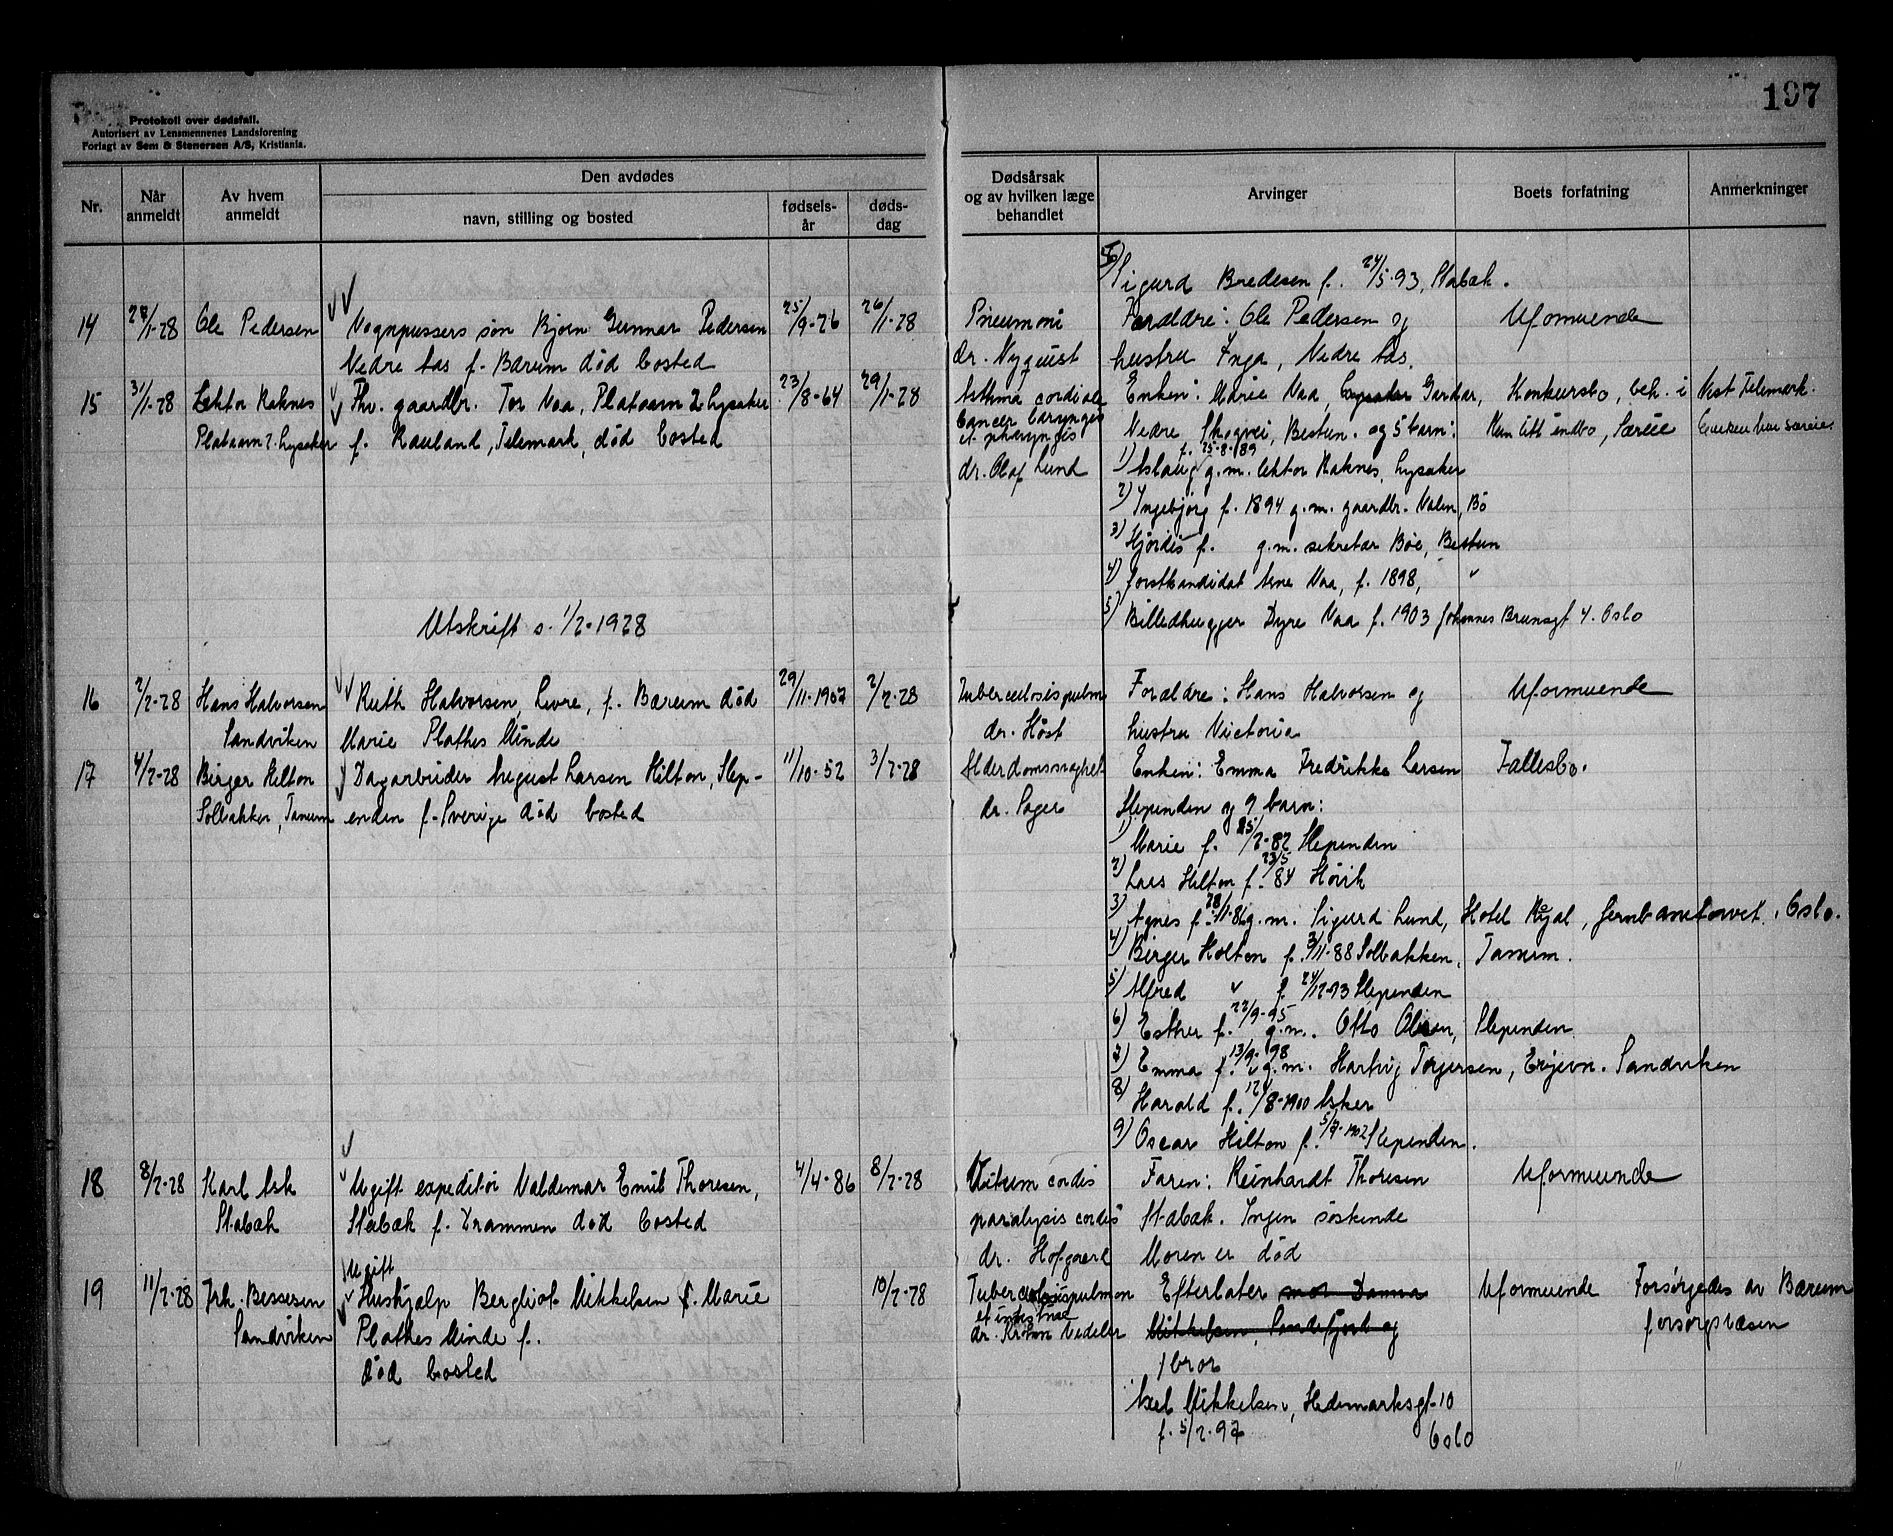 197
Protokoll over dødsfall.
Autorisert av Lensmennenes Landsforening
Forlagt av Sem & Stenersen A/S, Kristiania.
Nr.
Når anmeldt
Av hvem anmeldt
Den avdødes
navn, stilling og bosted
fødsels-år
døds-dag
Dødsårsak og av hvilken læge behandlet
Arvinger
Boets forfatning
Anmerkninger
Sigurd Bredesen f. 24/5-93, Stabæk.
14 28/1-28 Ole Pedersen Vognpussers søn Bjørn Gunnar Pedersen 25/9-26 26/1-28 Pneumoni Foraldre: Ole Pedersen og Uformuende
Nedre Aas f. Bærum død bosted dr. Nyquist hustru Inga, Nedre Aas.
15 31/1-28 Lektor Raknes Fhv. gaardbr. Tor Vaa, Plataaen 2 Lysaker 23/8-64 29/1-28 Asthma cordiale Enken: Marie Vaa, Lysaker Gardar, Konkursbo, beh. i Vest Telemark.
Plataaen 2. Lysaker f. Rauland, Telemark, død bosted cancer laryngis et pharyngis Nedre Skogvei, Bestun. og 5 barn: Kun litt indbo, særeie Enken har særeie
dr. Olaf Lund 1) Aslaug f. 25-8-189 g.m. lektor Raknes, Lysaker
2) Ingebjørg f. 1894 g.m. gaardbr. Valen, Bø
3) Hjørdis f. g.m. sekretær Bøe, Bestun
4) forstkandidat Arne Vaa, f. 1898, "
Utskrift s. 1/2-1928 5) Billedhugger Dyre Vaa f. 1903 Johannes Brunsgt 4. Oslo
16 2/2-28 Hans Halvorsen Ruth Halvorsen, Levre, f. Bærum død 29/11-1907 2/2-28 Tuberculosis pulm Foraldre: Hans Halvorsen og Uformuende
Sandviken Marie Plathes Minde dr. Høst hustru Victoria
17 4/2-28 Birger Hilton Dagarbeider August Larsen Hilton, Slep- 11/10-52 3/2-28 Alderdomssvaghet Enken: Emma Fredrikke Larsen Fallesbo.
Solbakken, Tanum enden f. Sverige død bosted dr. Sager Slependen og 9 barn:
1) Marie f. 25/2-82 Slependen
2) Lars Hilton f. 23/5 84 Høvik
3) Agnes f. 28/11-86 g.m. Sigurd Lund, Hotel Royal, Jernbanetorvet, Oslo.
4) Birger Hilton f. 3/11-88 Solbakken, Tanum.
5) Alfred " f. 24/12-93 Slependen
6) Esther f. 22/9-95 g.m. Otto Olsen, Slependen
7) Emma f. 13/9-98 g.m. Hartvig Torjersen, Engervn. Sandviken
8) Harald f. 12/8-1900 Asker
9) Oscar Hilton f. 5/7-1902 Slependen.
18 8/2-28 Karl Ask Ugift expeditør Valdemar Emil Thoresen, 4/4-86 8/2-28 Vitium cordis Faren: Reinhardt Thoresen Uformuende
Stabæk Stabæk f. Drammen død bosted paralysis cordis Stabæk. Ingen søskende
dr. Hofgaard Moren er død
Ugift
19 11/2-28 Frk. Bessesen Hushjælp Bergliot Mikkelsen f. Marie 10/2-28 Tuberculosis pulmon Efterlater mor Danna Uformuende Forsørgedes av Bærum
Sandviken Plathes Minde f. et intestinal dr. Krohn Vedeler Mikkelsen, Sandefjord og forsorgsvæsen
død bosted 1 bror
Axel Mikkelsen, Hedemarksgt-10
f. 5/2-97 Oslo